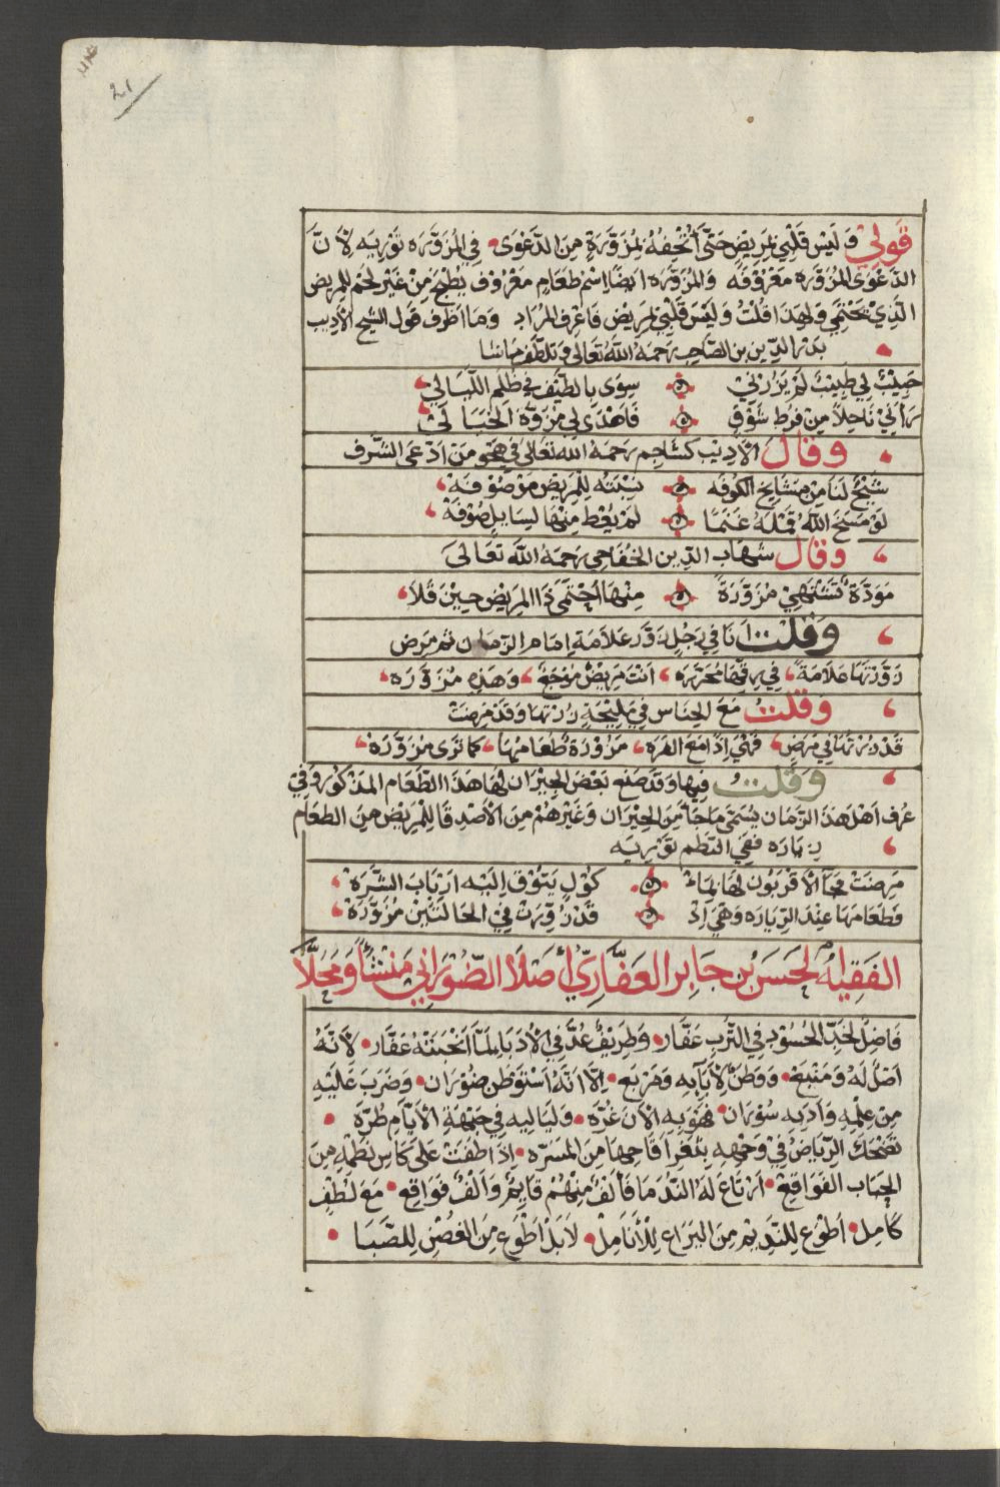 21
قولي وَلَيْسَ قَلْبِي بِمَرِيضٍ حَتَّى أُتْحِفَهُ بِمُزَوَّرَةٍ مِنَ الدَّعْوَى في المُزَوَّرَه تَوْرِيَه لِأَنَّ
الدَّعْوَى المُزَوَّره مَعْرُوفَه وَالمُزَوَّرَه ايضًا اسْم طعَامٍ مَعْرُوف يُطْبَخُ مِنْ غَيْرِ لَحْمٍ لِلْمَرِيض
الَّذِي يَحْتَمِي وَلِهَذَا قُلْتُ وَلَيْسَ قَلْبِي بِمَرِيض فَاعْرِف المُرَاد وَمَا اظرف قول الشيخ الأديب
بَدْر الدِّين بن الصَّاحِب رَحِمَهُ اللهُ تَعَالَى وَتَلَطَّفَ مَا شا
حَبِيْبٌ لِي طَبِيْبٌ لَمْ يَزُرْنِي سِوَى بِالطَّيْفِ فِي ظُلَمِ اللَّيَالِي
رَآنِي نَاحِلًا مِنْ فَرْطِ شَوْقِي فَاهْدَى لِي مُزَوَّرَة الخَيَالِي
وقال الأديب كشاجم رَحِمَهُ الله تعَالَى في هَجْوِ مَنِ ادَّعَى الشَّرَف
شَيْخٌ لَنَا مِنْ مَشَايِخِ الكُوفَه نِسْبَتُهُ لِلْمَرِيضِ مَوْصُوفَهْ
لَوْ مَسَخَ اللهُ قَمْلَهُ غَنَمًا لَمْ يُعْطِ مِنْهَا لِسَايِلٍ صُوْفَهْ
وقال شهَاب الدِّين الخفَاجي رَحِمَهُ اللهُ تعَالَى
مَوَدَّةٌ تَشْتَهِيْ مُزَوَّرَةً مِنْهَا احْتَمَى ذَا المَرِيضُ حِيْنَ قَلَا
وقلت انَا فِي رَجُلٍ زَوَّرَ عَلَامَة اِمَام الزمان ثم مَرِض
زَوَّرْتَهَا عَلَامَةً فِي رِقِّهَا مُحَرَّرَه انْتَ مَرِيضٌ مُوْجَعٌ وَهَذِهِ مُزَوَّرَه
وقلت مَعَ الجنَاس فِي مَلِيْحَةٍ زُرْتهَا وَقَدْ مَرِضَتْ
قَدْ زُرْتُهَا فِي مَرَضٍ فَهْيَ اِذًا مَعَ المَرَه مَزْوُرَةٌ طَعَامُهَا كَمَا تَرَى مُزَوَّرَهْ
وقلت فِيهَا وَقَدْ صَنَع بَعْض الجِيْرَان لهَا هَذَا الطَّعَام المَذْكُور وَفِي
عُرف اَهْل هَذَا الزَّمَان يُسَمَّى مَا جَاءَ مِنَ الجِيْرَان وَغَيْرِهُمْ مِنَ الأَصْدِقَا لِلْمَرِيْض مِنَ الطعَام
زيَارَه ففِي النَّظم تَوْرِيَه
مَرِضَتْ فَجَآ الأَقْرَبُونَ لهَا بِمَاءْ كُوْلٍ يَتُوْق اِلَيْه ارْبَابُ الشَّرَهْ
فَطَعَامُهَا عِنْدَ الزِّيَارَه وَهْيَ اِذْ قَدْ زُوِّرَتْ فِي الحَالَتَيْنِ مُزَوَّرَهْ
الفَقِيهُ الحَسَن بن جَابر العَفَّارِيّ أَصْلًا الضَّوْرَانِي مَنْشَأً وَمَحَلًّا
فَاضِلٌ لحَبِّ الحُسُوْدِ في التُّرب عَفَّار وَظَرِيْفٌ عُدَّ فِي الأُدَبَا لَمَّا أَنْجَبَتْهُ عَفَّار لِأَنَّهُ
اصْلٌ لَهُ وَمَنْبَع وَوَطَنٌ لِأَبَآيِهِ وَمَرْبَع اِلَّا انَّهُ اسْتَوْطَن ضَوْرَان وَضَرَبَ عَلَيْهِ
مِنْ عِلْمِهِ وَادَبِهِ سُوْرَان فَهْوَ بِهِ الآن غُرَّه وَلَيَالِيهِ فِي جَبْهَةِ الأَيَّامِ طُرَّه
تَضْحَكُ الرِّيَاضُ فِي وَجْهِهِ بِثَغْرِ اقَاحِهَا مِنَ المَسَرَّه اِذَا طَفَتْ عَلَى كَاسِ نَظْمِهِ مِنَ
الحبَاب الفَوَاقِع ارْتَاعَ لَهُ النَّدمَا فَأَلْفٌ مِنْهُمْ قَايِمٌ وَأَلْفٌ فَوَاقِع مَعَ لُطْفٍ
كَامِل اَطْوَع لِلنَّدِيْمِ مِنَ اليَرَاعِ لِلْأَنَامِلْ لَا بَلْ اَطْوَع مِنَ الغُصْنِ لِلصَّبَا